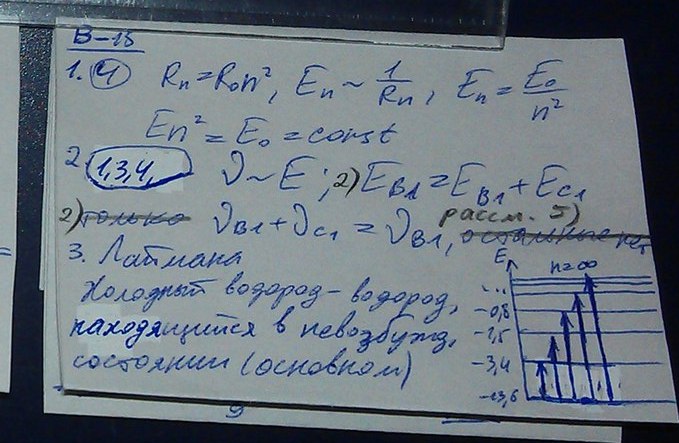 В-18
1. 4 Rn = R₀n², En ~ 1/Rn, En = E₀/n²
En² = E₀ = const
2. 1,3,4, ν ~ E; 2) EВ1 = EВ1 + EС1
2) только νВ1 + νС1 = νВ1, рассм. 5) остальные нет
3. Лаймана
Холодный водород – водород,
находящийся в невозбужд,
состоянии (основном)
E n=∞
...
-0,8
-1,5
-3,4
-13,6